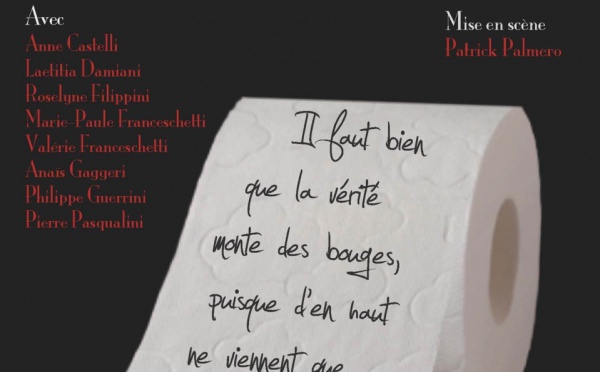 Avec
Anne Castelli
Laetitia Damiani
Roselyne Filippini
Marie-Paule Franceschetti
Valérie Franceschetti
Anaïs Gaggeri
Philippe Guerrini
Pierre Pasqualini
Mise en scène
Patrick Palmero
Il faut bien
que la vérité
monte des bouges,
puisque d'en haut
ne viennent que